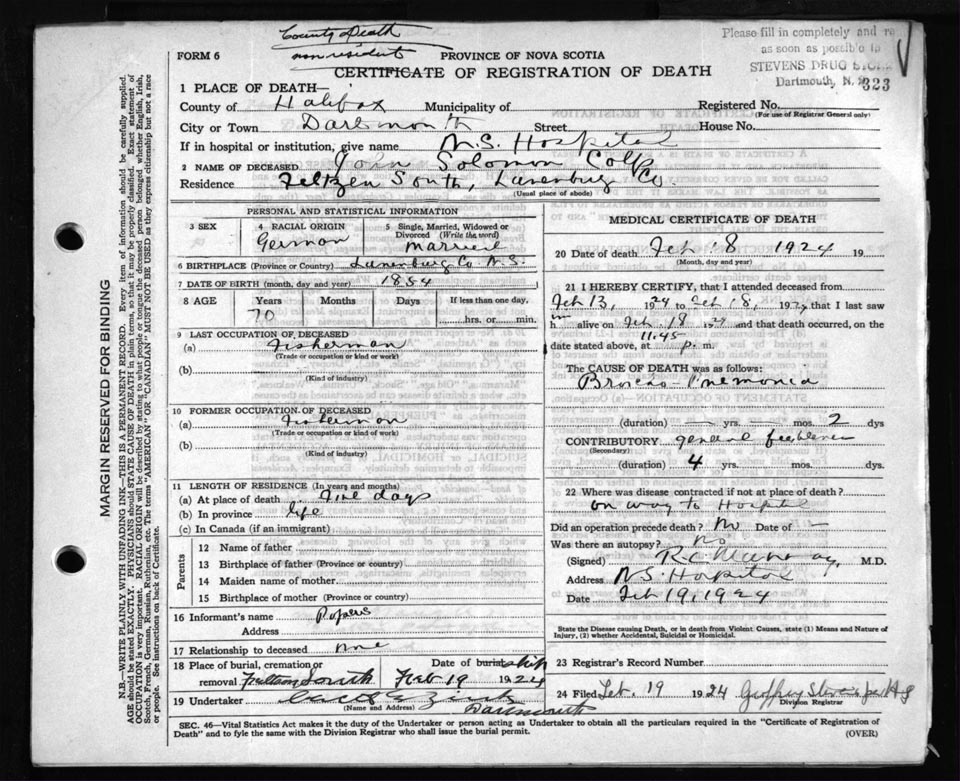 County Death
non resident
Please fill in completely and re
as soon as possible to
STEVENS DRUG STORE
Dartmouth, N. S.
323
FORM 6
PROVINCE OF NOVA SCOTIA
CERTIFICATE OF REGISTRATION OF DEATH
1 PLACE OF DEATH—
County of Halifax Municipality of Registered No.
(For use of Registrar General only)
City or Town Dartmouth Street House No.
If in hospital or institution, give name N.S. Hospital
2 NAME OF DECEASED John Solomon Colp
Residence Feltzen South, Lunenburg Co.
(Usual place of abode)
PERSONAL AND STATISTICAL INFORMATION
3 SEX 4 RACIAL ORIGIN 5 Single, Married, Widowed or
Divorced (Write the word)
German married
6 BIRTHPLACE (Province or Country) Lunenburg Co N.S.
7 DATE OF BIRTH (month, day and year) 1854
8 AGE Years Months Days If less than one day,
70 hrs. or min.
9 LAST OCCUPATION OF DECEASED
(a) Fisherman
(Trade or occupation or kind or work)
(b)
(Kind of industry)
10 FORMER OCCUPATION OF DECEASED
(a) Fisherman
(Trade or occupation or kind or work)
(b)
(Kind of industry)
11 LENGTH OF RESIDENCE (In years and months)
(a) At place of death five days
(b) In province life
(c) In Canada (if an immigrant)
Parents
12 Name of father
13 Birthplace of father (Province or country)
14 Maiden name of mother
15 Birthplace of mother (Province or country)
16 Informant's name Papers
Address
17 Relationship to deceased none
18 Place of burial, cremation or Date of burial ship
removal Feltzen South Feb 19 1924
19 Undertaker Zink
(Name and Address) Dartmouth
MEDICAL CERTIFICATE OF DEATH
20 Date of death Feb 18 1924 19
(Month, day and year)
21 I HEREBY CERTIFY, that I attended deceased from
Feb 13, 1924 to Feb 18, 1924 that I last saw
him alive on Feb 18 1924 and that death occurred, on the
date stated above, at 11.45 p. m.
The CAUSE OF DEATH was as follows:
Broncho-Pnemonia
(duration) — yrs. — mos. 2 dys
CONTRIBUTORY general feebleness
(Secondary)
(duration) 4 yrs. mos. dys.
22 Where was disease contracted if not at place of death?
on way to Hospital
Did an operation precede death? No Date of —
Was there an autopsy? No
(Signed) M.D.
Address N.S. Hospital
Date Feb 19, 1924
State the Disease causing Death, or in death from Violent Causes, state (1) Means and Nature of
Injury, (2) whether Accidental, Suicidal or Homicidal.
23 Registrar's Record Number
24 Filed Feb. 19 1924 Geoffrey Stevens per H S
Division Registrar
SEC. 46—Vital Statistics Act makes it the duty of the Undertaker or person acting as Undertaker to obtain all the particulars required in the "Certificate of Registration of
Death" and to fyle the same with the Division Registrar who shall issue the burial permit.
(OVER)
MARGIN RESERVED FOR BINDING
N.B.—WRITE PLAINLY WITH UNFADING INK—THIS IS A PERMANENT RECORD. Every item of information should be carefully supplied.
AGE should be stated EXACTLY. PHYSICIANS should STATE CAUSE OF DEATH in plain terms, so that it may be properly classified. Exact statement of
OCCUPATION is very important. RACIAL ORIGIN will be described by stating to what people or tongue the deceased person belonged whether English, Irish,
Scotch, French, German, Russian, Ruthenian, etc. The terms "AMERICAN" OR "CANADIAN" MUST NOT BE USED as they express citizenship but not a race
or people. See instructions on back of Certificate.